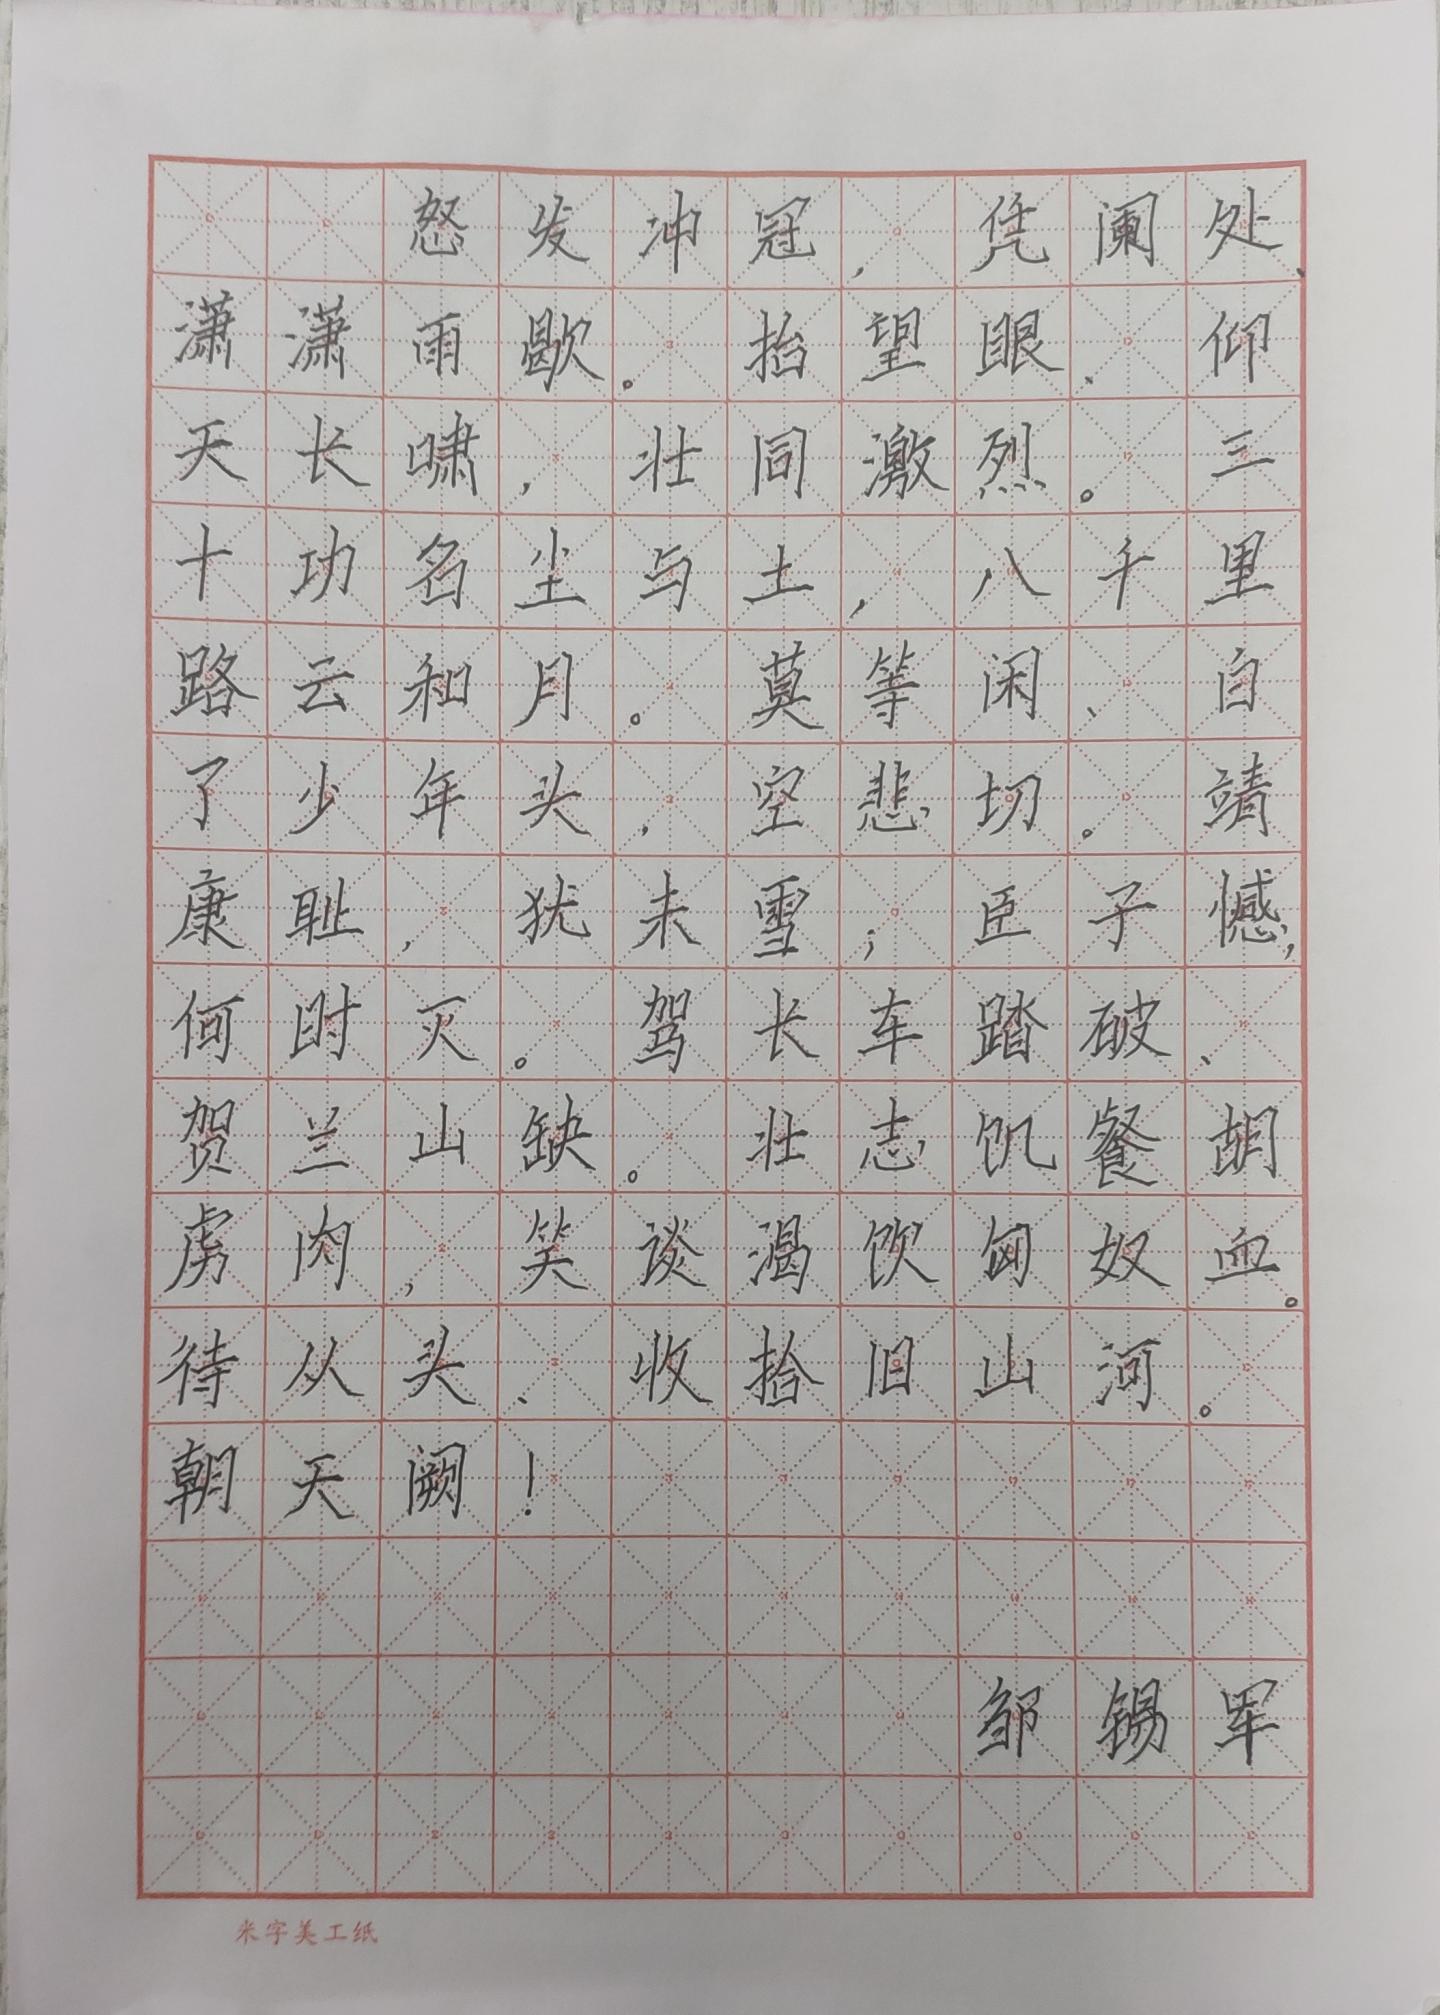 怒发冲冠，凭阑处、
潇潇雨歇。抬望眼、仰
天长啸，壮同激烈。三
十功名尘与土，八千里
路云和月。莫等闲、白
了少年头，空悲切。靖
康耻，犹未雪；臣子憾，
何时灭。驾长车踏破、
贺兰山缺。壮志饥餐胡
虏肉，笑谈渴饮匈奴血。
待从头、收拾旧山河。
朝天阙！
邹锡军
米字美工纸